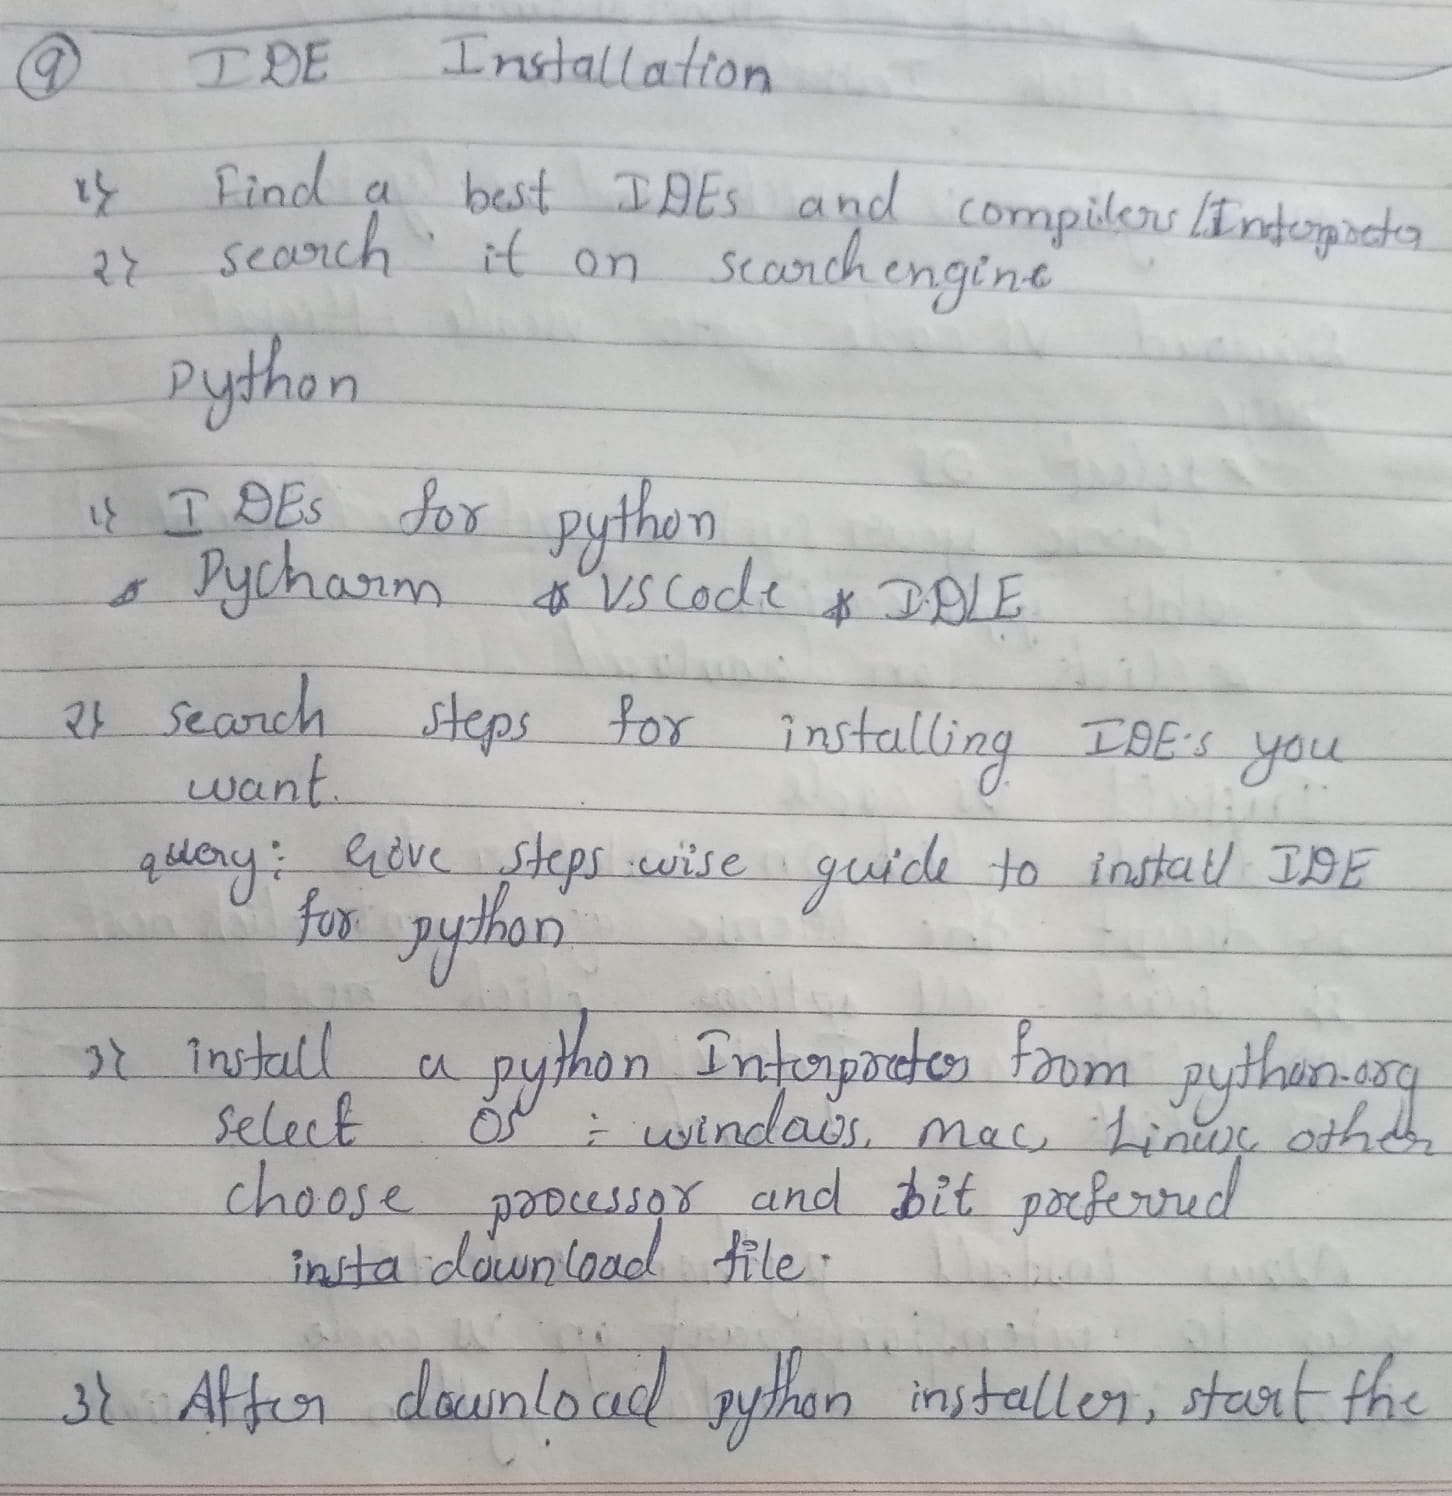 9 IDE Installation
1} Find a best IDEs and compilers/Interpreter
2} search it on search engine
Python
1} IDEs for python
* Pycharm * VS Code * IDLE
2} search steps for installing IDE's you
want.
query: Give steps wise guide to install IDE
for python
3} install a python Interpreter from python.org
select OS : windows, mac, Linux other
choose processor and bit preferred
insta download file.
3} After download python installer, start the